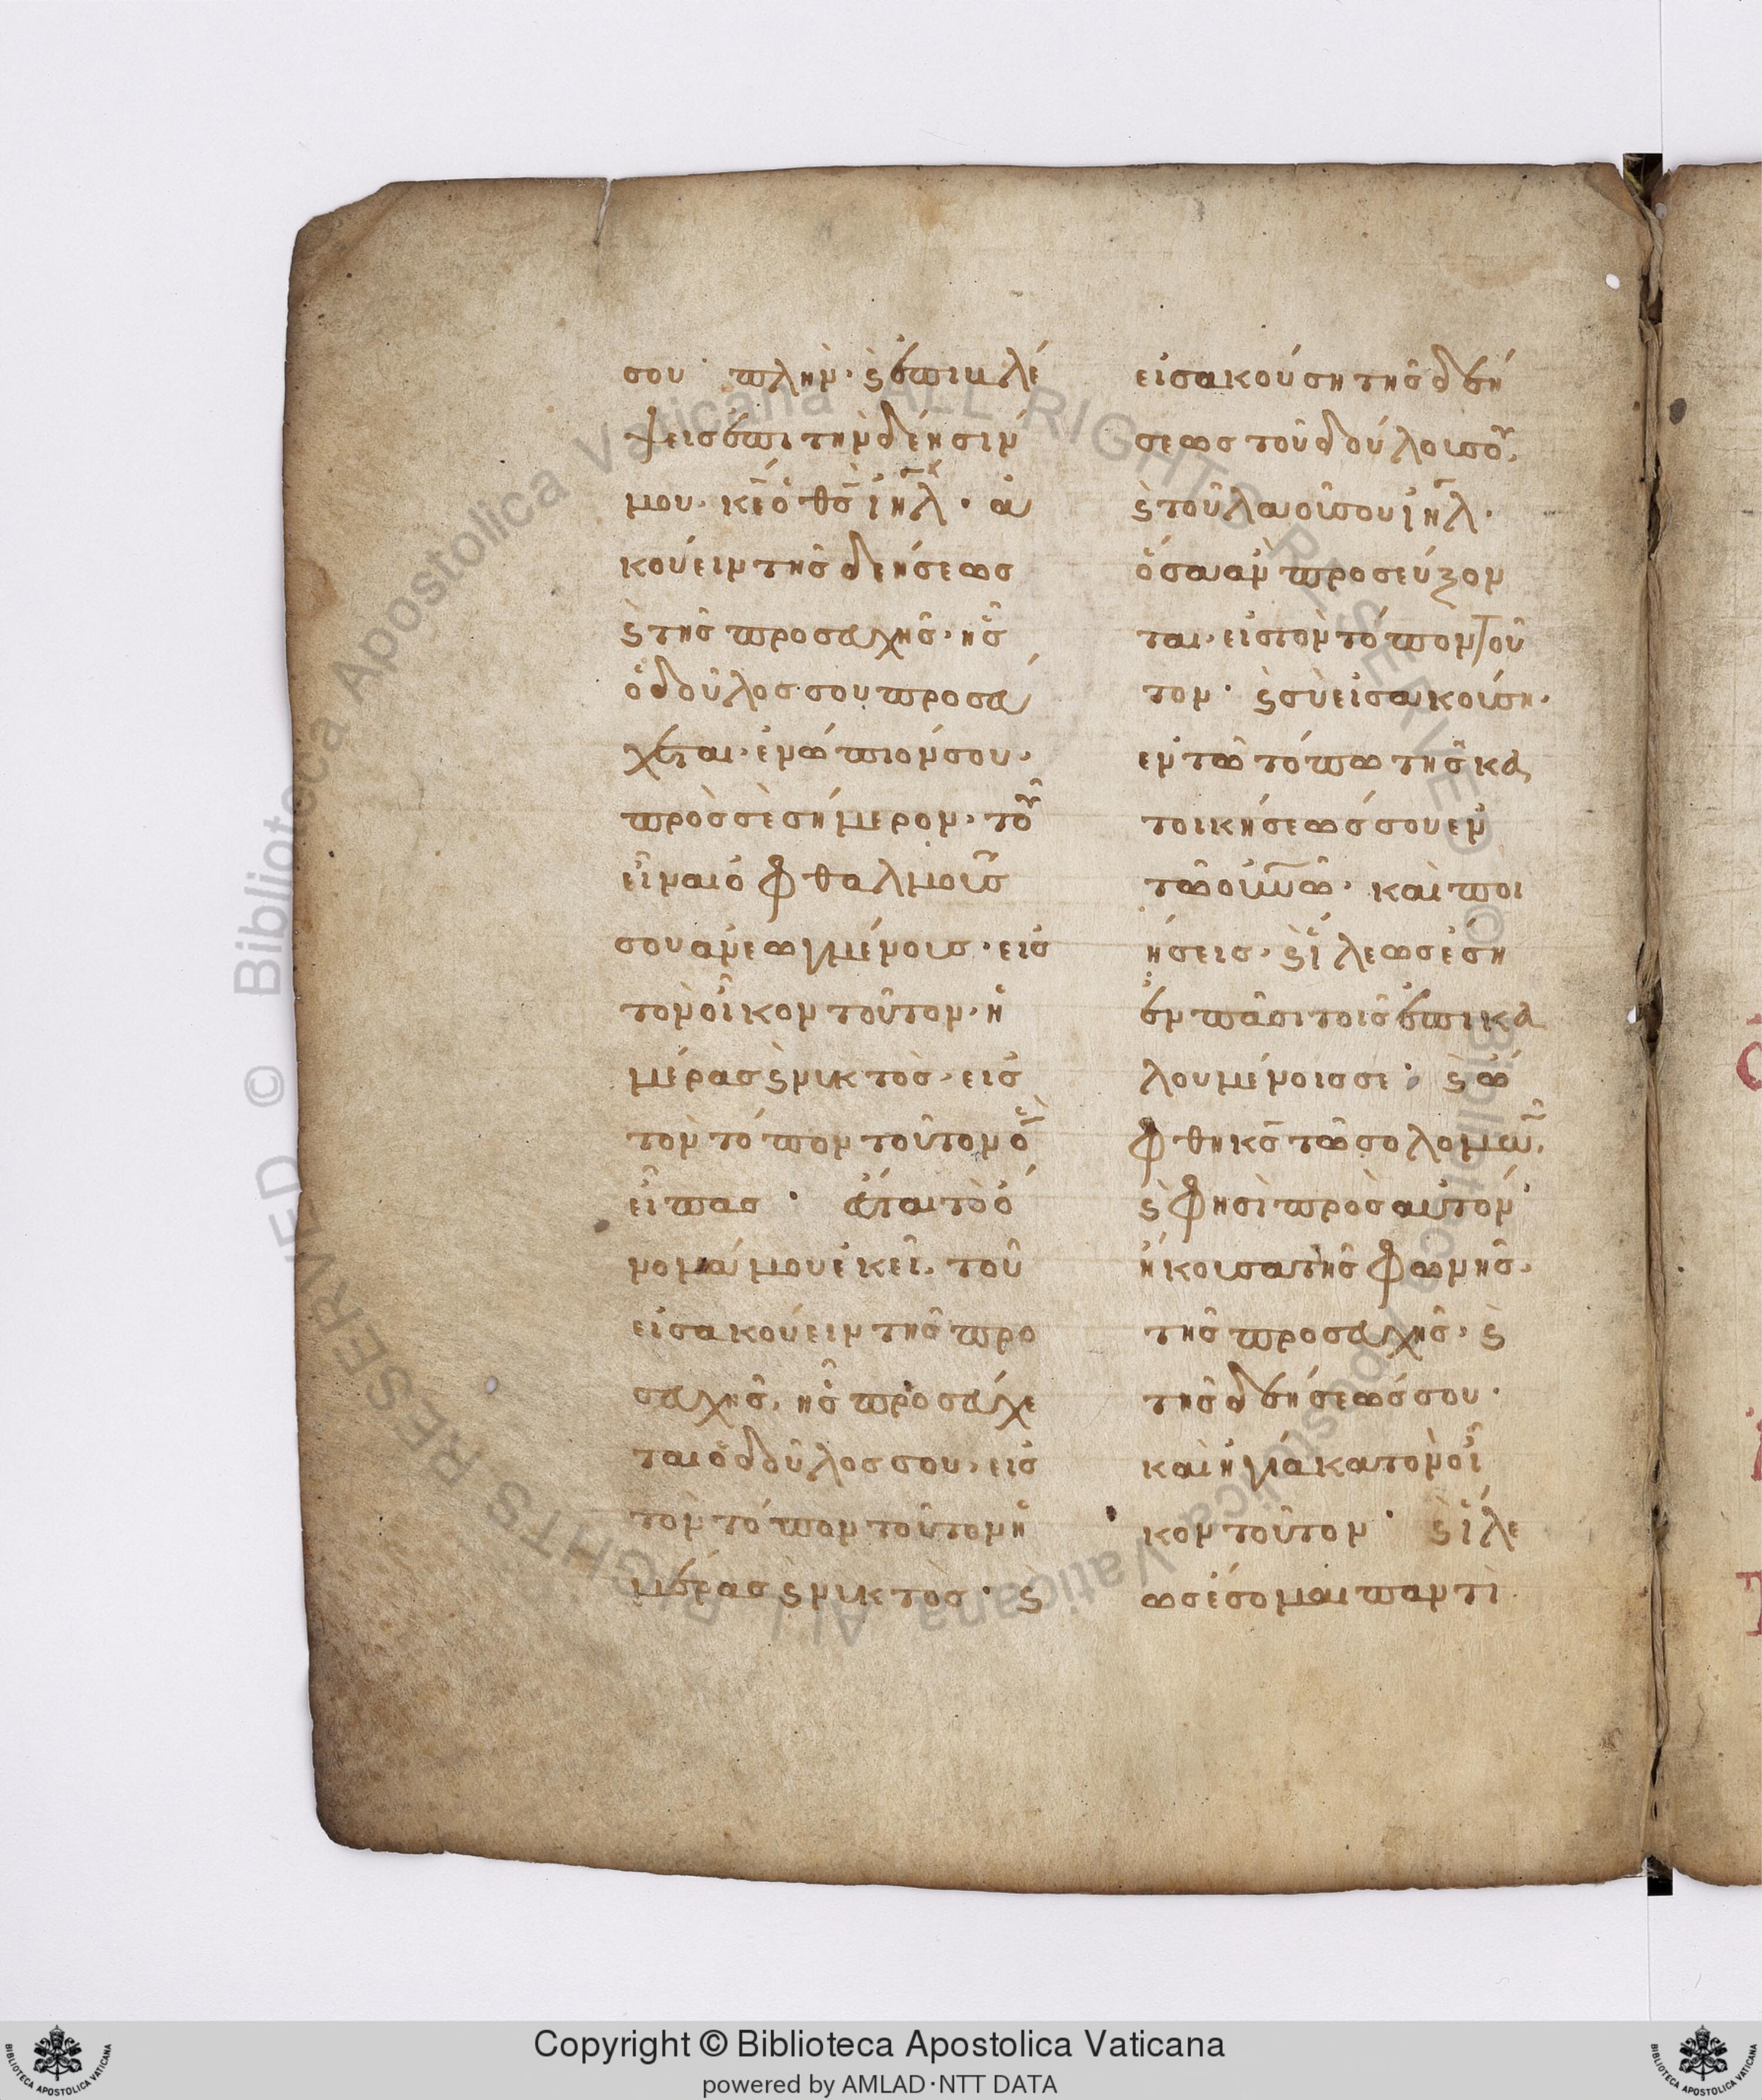 σου· πλὴν· ϛ ἐπιβλέ
ψεις ἐπὶ τὴν δέησίν
μου· κ̅ε̅ ὁ θ̅ς̅ ἰη̅λ̅· ἀ
κούειν τῆς δεήσεως
ϛ τῆς προσευχῆς· ἧς
ὁ δοῦλος σου προσεύ
χεται· ἐνώπιόν σου·
πρὸς σὲ σήμερον· τοῦ
εἶναι ὀφθαλμούς
σου ἀνεωγμένους· εἰς
τὸν οἶκον τοῦτον· ἡ
μέρας ϛ νυκτὸς· εἰς
τὸν τόπον τοῦτον ὃν
εἶπας· ἔσται τὸ ὄ
νομά μου ἐκεῖ· τοῦ
εἰσακούειν τῆς προ
σευχῆς, ἧς προσεύχε
ται ὁ δοῦλος σου· εἰς
τὸν τόπον τοῦτον ἡ
μέρας ϛ νυκτὸς· ϛ
εἰσακούσῃ τῆς δεή
σεως τοῦ δούλου σου,
ϛ τοῦ λαοῦ σου ἰη̅λ̅·
ὅσα ἂν προσεύξον
ται· εἰς τὸν τόπον τοῦ
τον· ϛ σὺ εἰσακούση·
ἐν τῶ τόπω τῆς κα
τοικήσεώς σου ἐν
τῶ οὐ̅ν̅ῶ· καὶ ποι
ήσεις· ϛ ἵλεως ἔση
ἐν πᾶσι τοῖς ἐπικα
λουμένοις σε· ϛ ὤ
φθη κ̅ς̅ τῶ σολομῶν,
ϛ φησὶ πρὸς αὐτόν·
ἤκουσα τῆς φωνῆς·
τῆς προσευχῆς· ϛ
τῆς δεήσεώς σου·
καὶ ἡγίακα τὸν οἶ
κον τοῦτον· ϛ ἵλε
ως ἔσομαι παντὶ
Copyright © Biblioteca Apostolica Vaticana
powered by AMLAD·NTT DATA
© Biblioteca Apostolica Vaticana ALL RIGHTS RESERVED
© Biblioteca Apostolica Vaticana ALL RIGHTS RESERVED